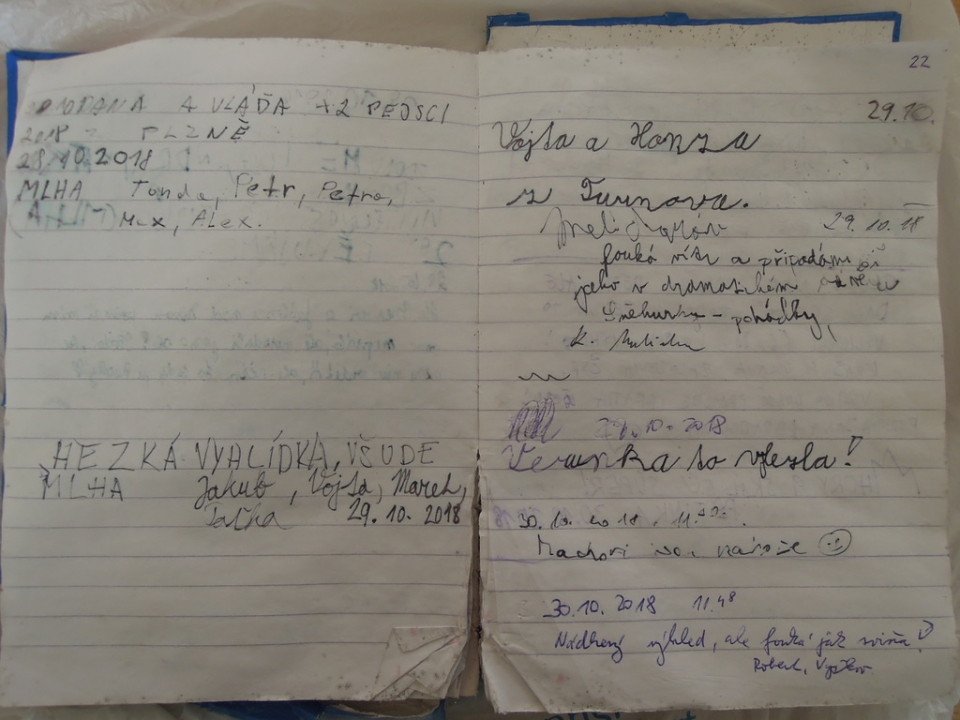 A VLÁĎA + 2 PEJSCI
2018 PLZNĚ
28.10.2018
MLHA Tonda, Petr, Petra,
Max, Alex.
HEZKÁ VYHLÍDKA, VŠUDE
MLHA Jakub, Vojta, Marek,
Taťka 29. 10. 2018
22
29.10.
Vojta a Honza
z Turnova.
29. 10. 18
fouká vítr a připadám si
jako v dramatickém
Sněhurky - pohádky,
K.
10. 2018
Verunka to vylezla!
30. 10. 2018 11.
Machori na
30.10. 2018 11.48
Nádherný výhled, ale fouká jak sviňa!
Robert, Vyškov